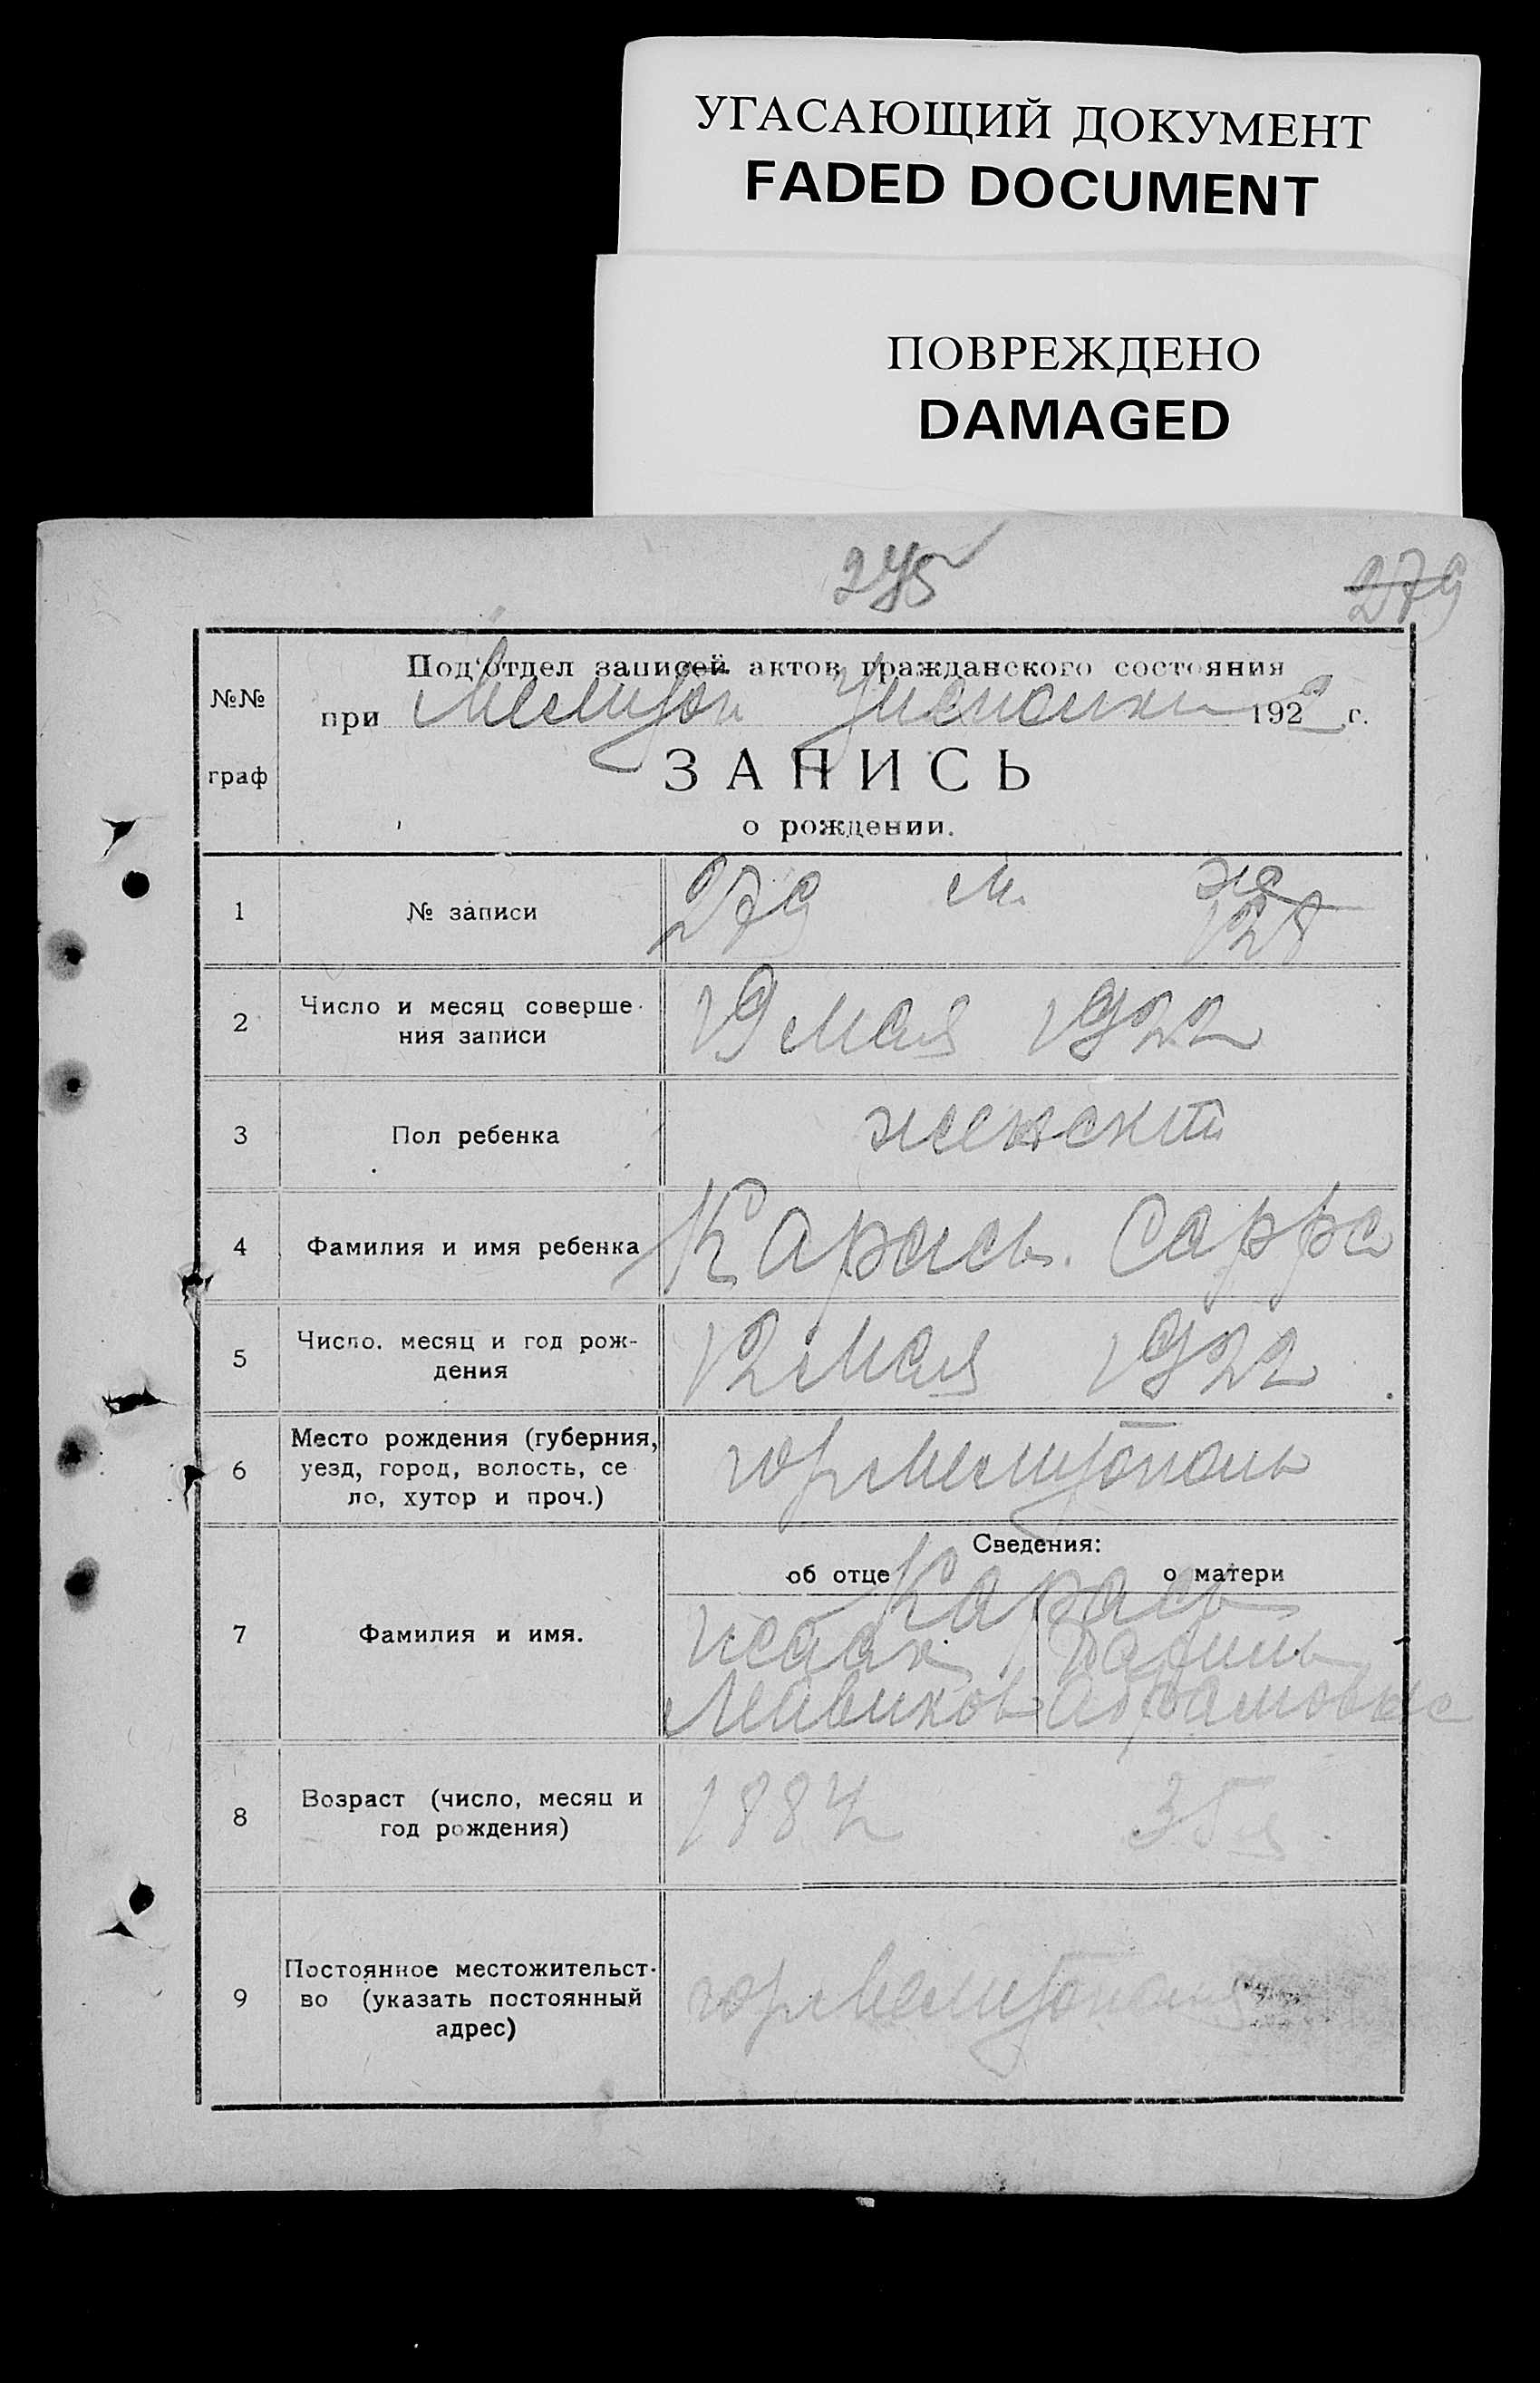 УГАСАЮЩИЙ ДОКУМЕНТ
FADED DOCUMENT
ПОВРЕЖДЕНО
DAMAGED
275
279
№№ граф
Под'отдел записей актов гражданского состояния
при Мелитоп 1922 г.
ЗАПИСЬ
о рождении.
1 № записи 279 м. ж 128
2 Число и месяц соверше-
ния записи 19 мая 1922
3 Пол ребенка женский
4 Фамилия и имя ребенка Карась Сарра
5 Число, месяц и год рож-
дения 12 мая 1922
6 Место рождения (губерния,
уезд, город, волость, се
ло, хутор и проч.) гор Мелитополь
Сведения:
об отце о матери
Карась
7 Фамилия и имя. Исаак
Абрамовна
8 Возраст (число, месяц и
год рождения) 1884 35 л.
9 Постоянное местожительст-
во (указать постоянный
адрес) гор Мелитополь